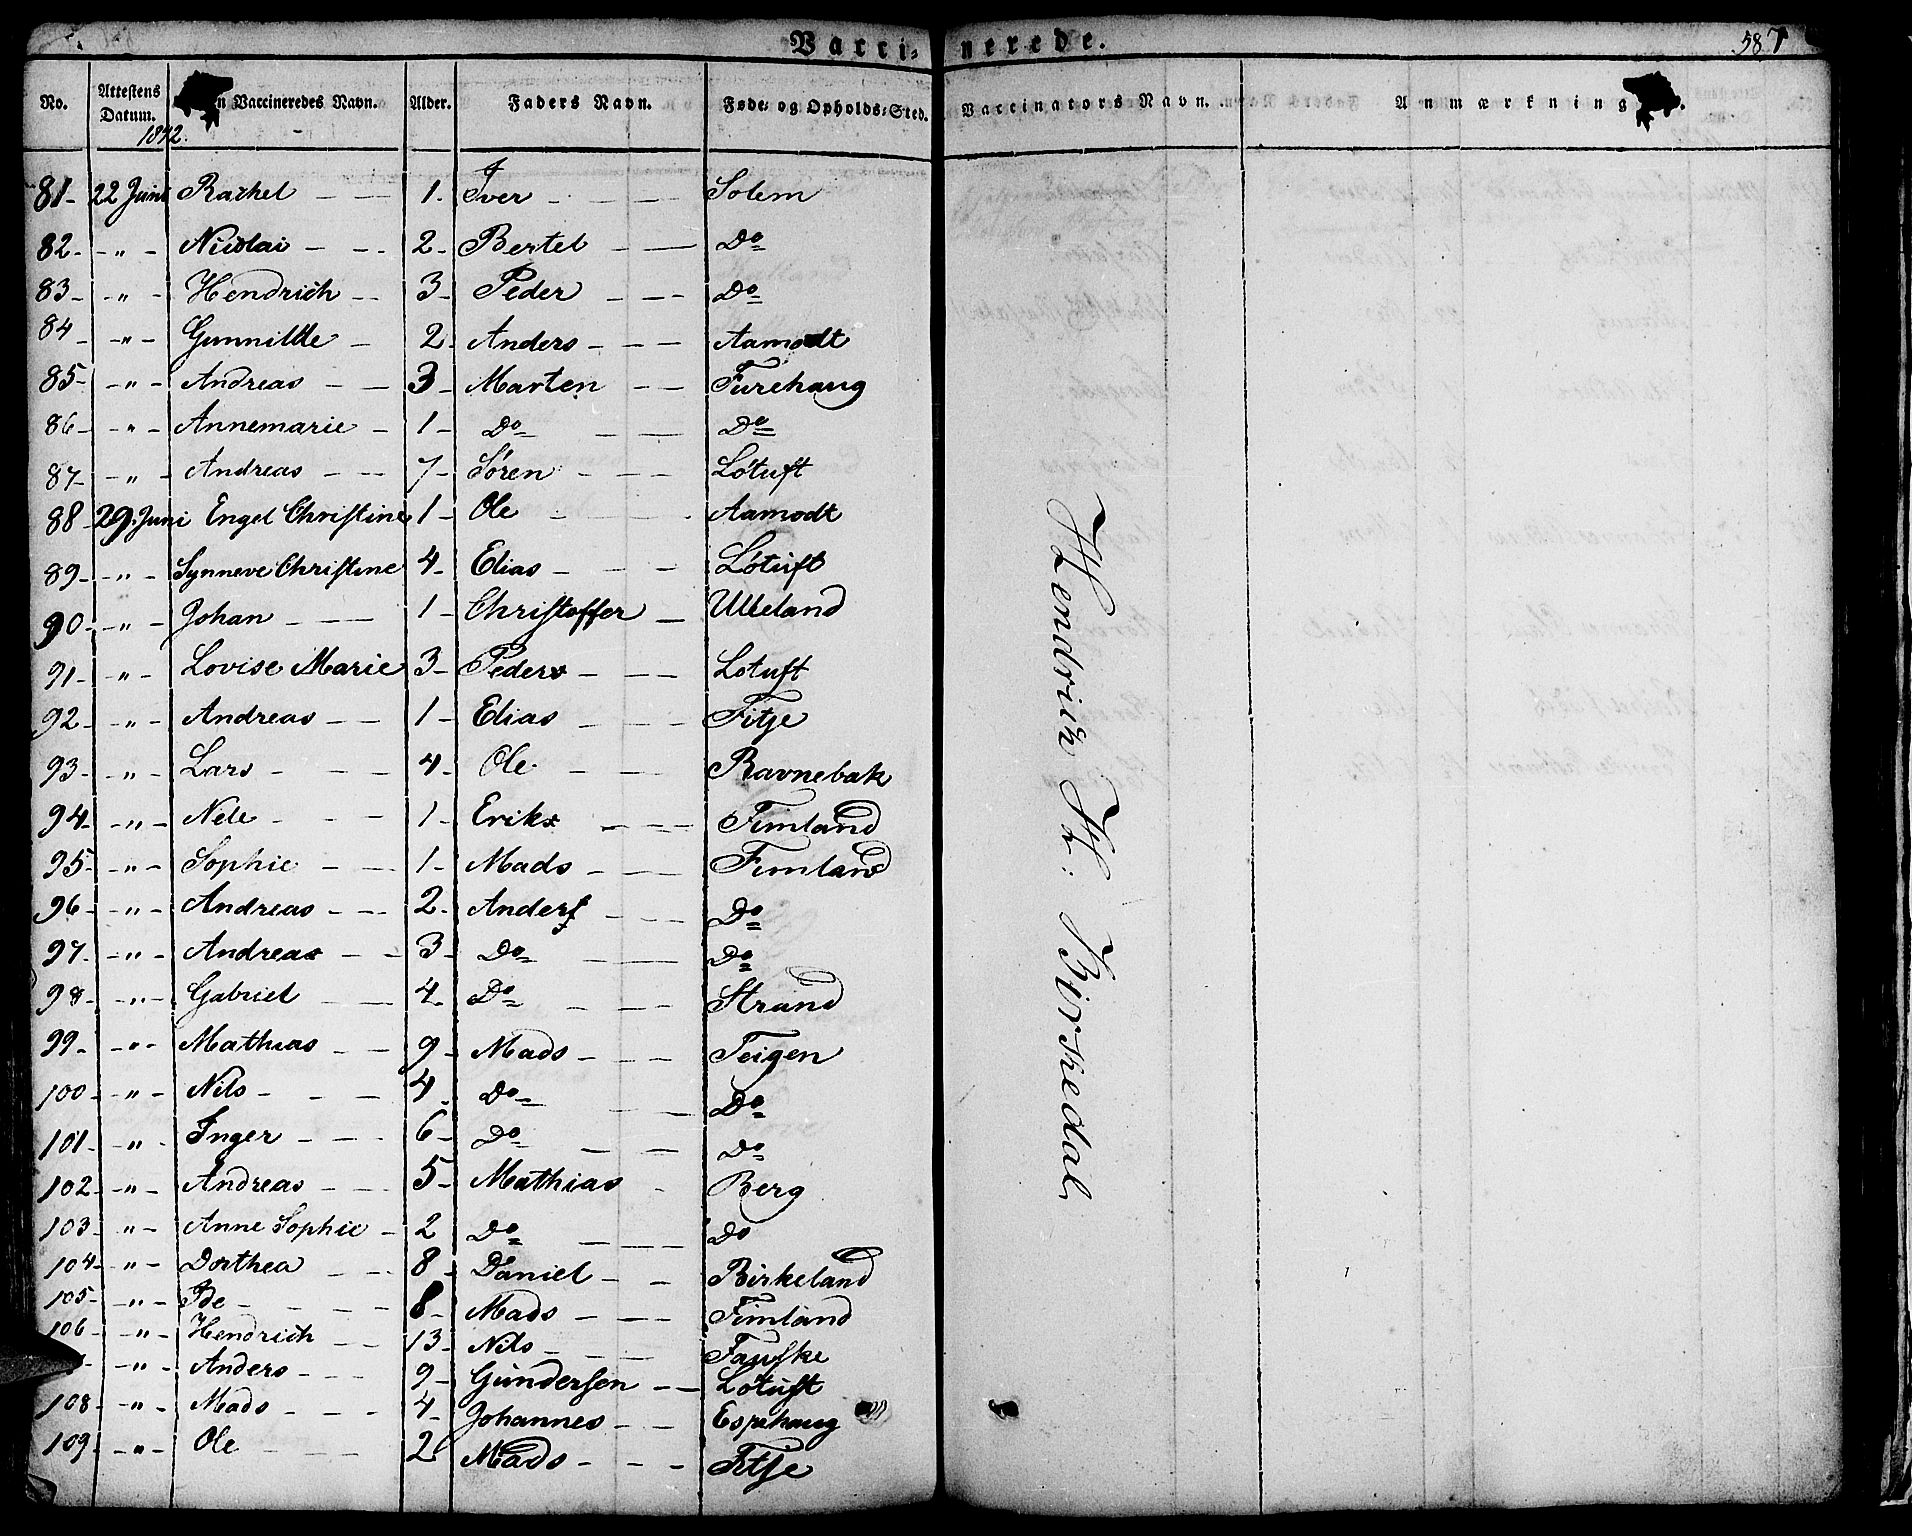 Vacci- nerede. 587
No. Attestens Datum. n Vaccineredes Navn. Alder. Faders Navn. Føde- og Opholds-Sted. Vaccinators Navn. Anmærkning .
1842.
81- 22 Juni Rachel - - 1. Iver - - - Solem
82- - " - Nicolai - - - 2- Bertel - - Do
83- - " - Hendrich - - 3- Peder - - - Do
84 - - " - Gunnilde - 2- Anders - - - Aamodt
85- - " - Andreas - - 3- Marten - - Furehaug
86- - " - Annemarie - 1- Do - - Do
87- - " - Andreas - - - 7- Sören - - - Lötuft
88- 29. Juni Engel Christine 1- Ole - - - Aamodt
89- - " - Synneve Christine 4- Elias - - - Lötuft
90- - " - Johan - - - 1- Christoffer - Ulleland
91- - " - Lovise Marie 3- Peder - - - Lotuft
92- - " - Andreas - - 1- Elias - - - Fitje
93- - " - Lars - - - 4- Ole - - - Ravnebak
94- - " - Nele - - - 1- Erik - - - Fimland
95- - " - Sophie - - 1- Mads - - - Fimland
96- - " - Andreas - - - 2- Anders - - - Do
97- - " - Andreas - - 3- Do - - - Do
98- - " - Gabriel - - 4- Do - - - Strand
99- - " - Mathias - - 9- Mads - - - Teigen
100- - " - Nils - - - 4- Do - - - Do
101- - " - Inger - - - 6- Do - - - Do
102- - " - Andreas - - - 5- Mathias - Berg
103- " - Anne Sophie - 2 Do - - - Do
104- - " - Dorthea - - - 8- Daniel - - Birkeland
105- - " - Ide - - - - 8- Mads - - - Fimland
106- - " - Hendrich - - 13- Nils - - - Fauske
- " - Anders - - - 9- Gundersen - - Lötuft
108- - " - Mads - - - 4- Johannes - - Espehaug
109- - " - Ole - - - 2 Mads - - - Fitje
Hendrich H: Birkedal